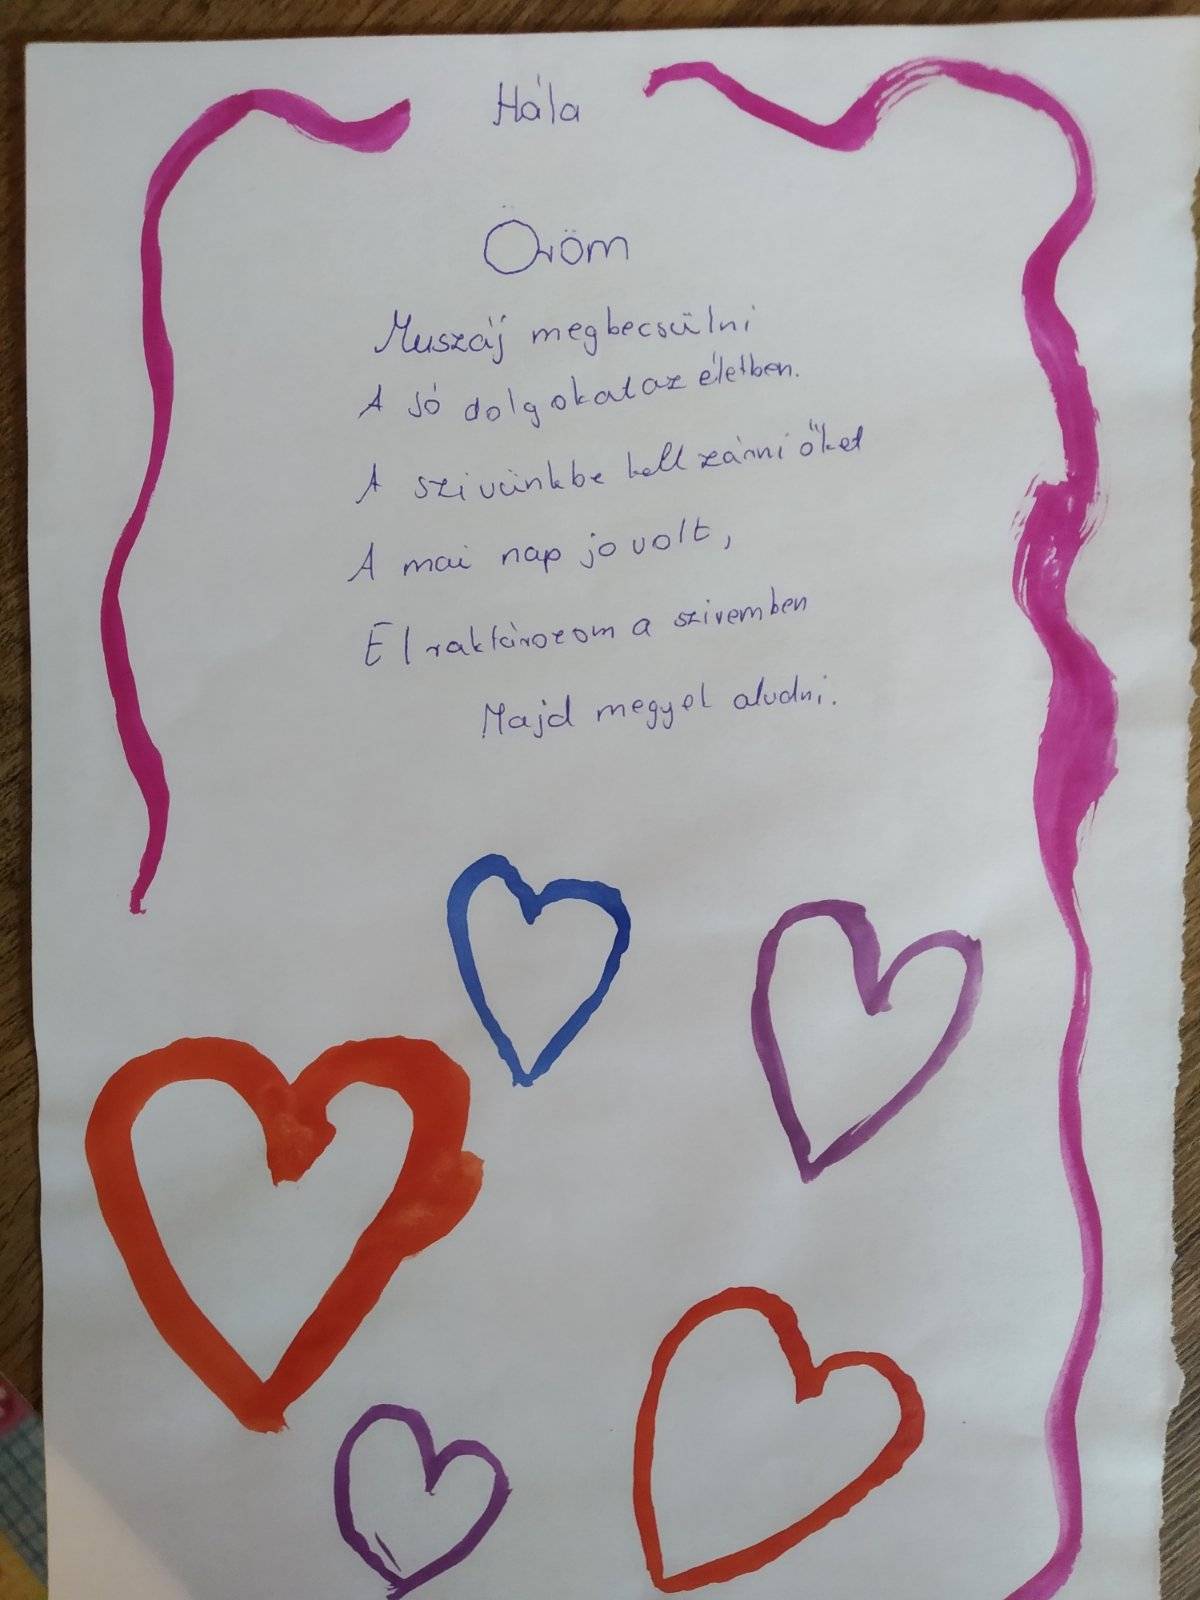 Hála
Öröm
Muszáj megbecsülni
A jó dolgokat az életben.
A szivünkbe kell zárni őket
A mai nap jo volt,
Elraktározom a szivemben
Majd megyek aludni.